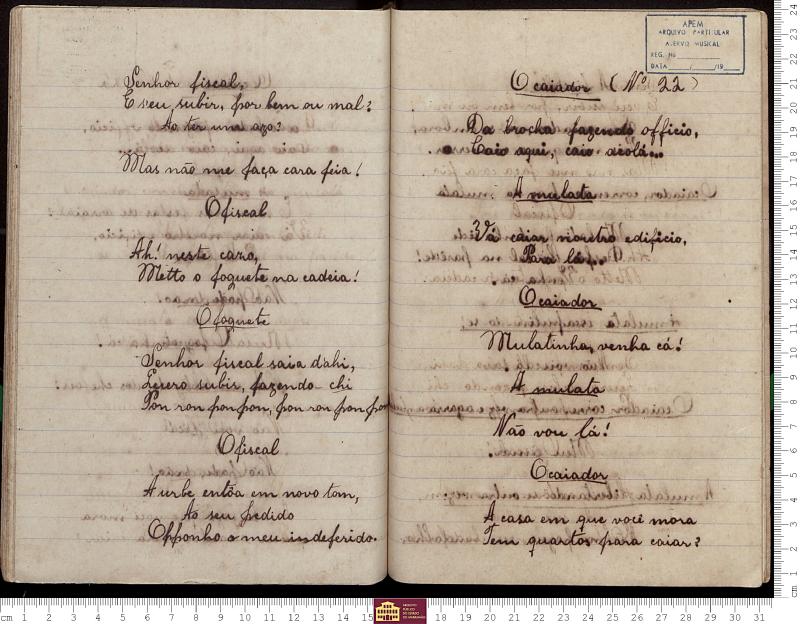 Senhor fiscal,
E seu subir, por bem ou mal?
Ao ter uma azo?
Mas não me faça cara feia!
O fiscal
Ah! neste cazo,
Metto o foguete na cadeia!
O foguete
Senhor fiscal saia d'ahi,
Quero subir, fazendo chi
Pon ron pon pon, pon ron pon pon
O fiscal
A urbe entôa em novo tom,
Ao seu pedido
Opponho o meu indeferido.
APEM
ARQUIVO PARTICULAR
ACERVO MUSICAL
REG. No
DATA / /19
O caiador (Nº 22)
Da brocha fazendo officio,
Caio aqui, caio acolá...
A mulata
Vá caiar noutro edificio,
Para lá...
O caiador
Mulatinha, venha cá!
A mulata
Não vou lá!
O caiador
A casa em que você mora
Tem quartos para caiar?
cm 1 2 3 4 5 6 7 8 9 10 11 12 13 14 15
ARQUIVO PÚBLICO DO ESTADO DO MARANHÃO
18 19 20 21 22 23 24 25 26 27 28 29 30 31
cm 1 2 3 4 5 6 7 8 9 10 11 12 13 14 15 16 17 18 19 20 21 22 23 24